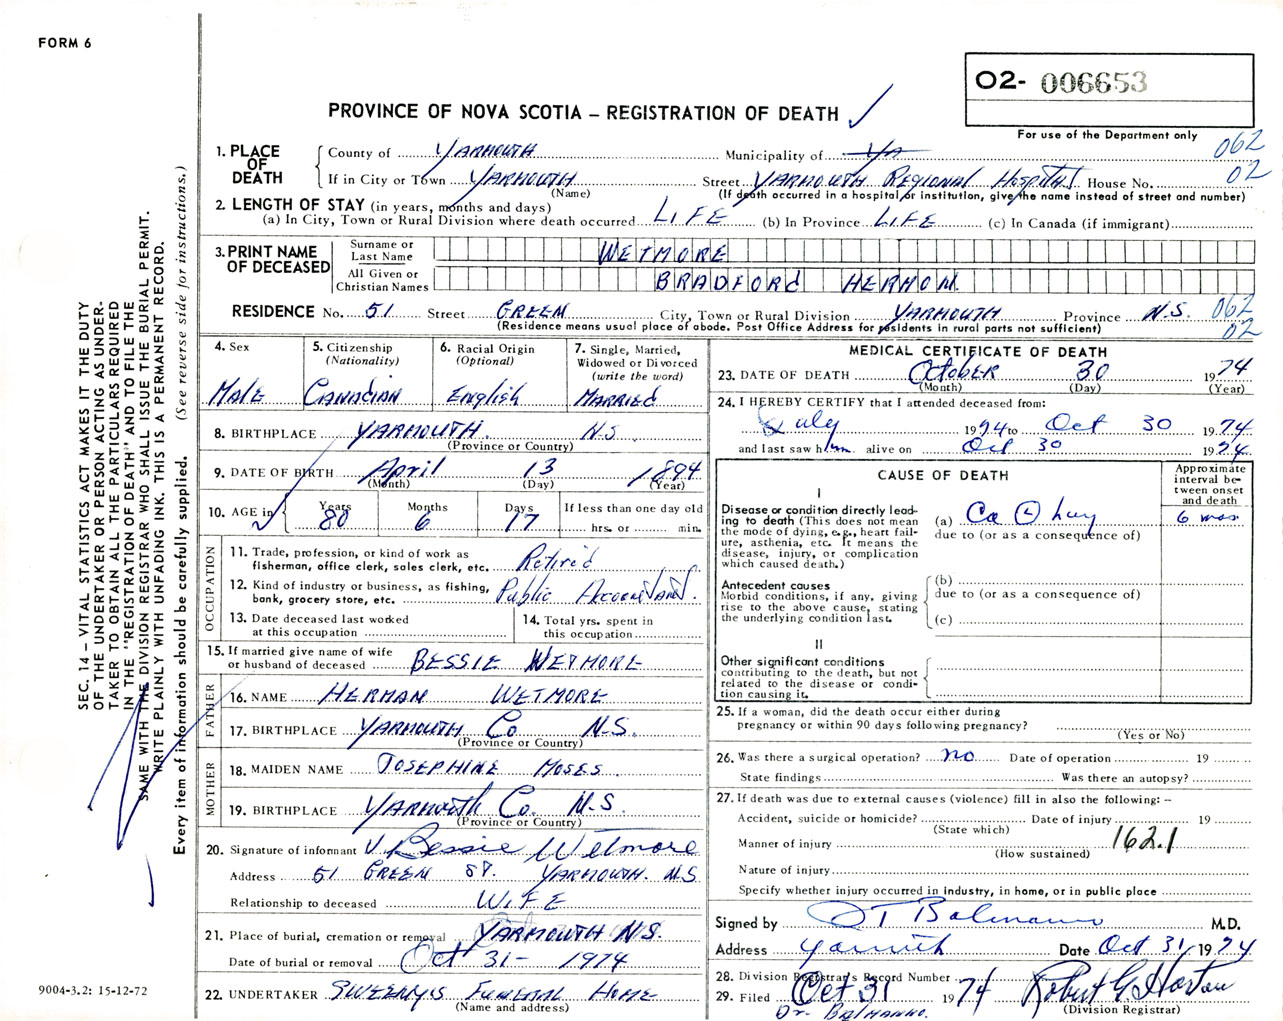 FORM 6
O2- 006653
PROVINCE OF NOVA SCOTIA – REGISTRATION OF DEATH
For use of the Department only
062
02
1. PLACE OF DEATH
County of YARMOUTH Municipality of YA
If in City or Town YARMOUTH Street YARMOUTH REGIONAL HOSPITAL House No.
(Name) (If death occurred in a hospital or institution, give the name instead of street and number)
2. LENGTH OF STAY (in years, months and days)
(a) In City, Town or Rural Division where death occurred LIFE (b) In Province LIFE (c) In Canada (if immigrant)
3. PRINT NAME OF DECEASED
Surname or Last Name WETMORE
All Given or Christian Names BRADFORd HERMON
RESIDENCE No. 51 Street GREEN City, Town or Rural Division YARMOUTH Province N.S. 062
02
(Residence means usual place of abode. Post Office Address for residents in rural parts not sufficient)
SEC. 14 – VITAL STATISTICS ACT MAKES IT THE DUTY
OF THE UNDERTAKER OR PERSON ACTING AS UNDER-
TAKER TO OBTAIN ALL THE PARTICULARS REQUIRED
IN THE "REGISTRATION OF DEATH" AND TO FILE THE
SAME WITH THE DIVISION REGISTRAR WHO SHALL ISSUE THE BURIAL PERMIT.
WRITE PLAINLY WITH UNFADING INK. THIS IS A PERMANENT RECORD.
Every item of information should be carefully supplied. (See reverse side for instructions.)
4. Sex
MALE
5. Citizenship
(Nationality)
CANAdiAN
6. Racial Origin
(Optional)
English
7. Single, Married,
Widowed or Divorced
(write the word)
MARRIEd
8. BIRTHPLACE YARMOUTH. N.S.
(Province or Country)
9. DATE OF BIRTH April 13 1894
(Month) (Day) (Year)
10. AGE in
Years Months Days If less than one day old
80 6 17 hrs. or min.
OCCUPATION
11. Trade, profession, or kind of work as
fisherman, office clerk, sales clerk, etc. Retired
12. Kind of industry or business, as fishing,
bank, grocery store, etc. Public Accountant.
13. Date deceased last worked
at this occupation
14. Total yrs. spent in
this occupation
15. If married give name of wife
or husband of deceased BESSIE WETMORE
FATHER
16. NAME HERMAN WETMORE
17. BIRTHPLACE YARMOUTH Co N.S.
(Province or Country)
MOTHER
18. MAIDEN NAME JOSEPHINE MOSES
19. BIRTHPLACE YARMOUTH Co. N.S.
(Province or Country)
20. Signature of informant Bessie Wetmore
Address 51 GREEN ST. YARMOUTH. N.S
Relationship to deceased WIFE
21. Place of burial, cremation or removal YARMOUTH N.S.
Date of burial or removal Oct 31 – 1974
22. UNDERTAKER SWEENY'S FUNERAL HOME
(Name and address)
9004-3.2: 15-12-72
MEDICAL CERTIFICATE OF DEATH
23. DATE OF DEATH October 30 1974
(Month) (Day) (Year)
24. I HEREBY CERTIFY that I attended deceased from:
July 1974 to Oct 30 1974
and last saw him alive on Oct 30 1974
CAUSE OF DEATH
Approximate interval be-tween onset and death
I
Disease or condition directly lead-
ing to death (This does not mean
the mode of dying, e.g., heart fail-
ure, asthenia, etc. It means the
disease, injury, or complication
which caused death.)
(a) Ca (L) Lung 6 mos
due to (or as a consequence of)
Antecedent causes
Morbid conditions, if any, giving
rise to the above cause, stating
the underlying condition last.
(b)
due to (or as a consequence of)
(c)
II
Other significant conditions
contributing to the death, but not
related to the disease or condi-
tion causing it.
25. If a woman, did the death occur either during
pregnancy or within 90 days following pregnancy?
(Yes or No)
26. Was there a surgical operation? no Date of operation 19
State findings Was there an autopsy?
27. If death was due to external causes (violence) fill in also the following: –
Accident, suicide or homicide? Date of injury 19
(State which)
Manner of injury 162.1
(How sustained)
Nature of injury
Specify whether injury occurred in industry, in home, or in public place
Signed by Balmanno M.D.
Address Yarmouth Date Oct 31/1974
28. Division Registrar's Record Number
29. Filed Oct 31 1974 Robert G. Horton
(Division Registrar)
Dr. BALMANNO.